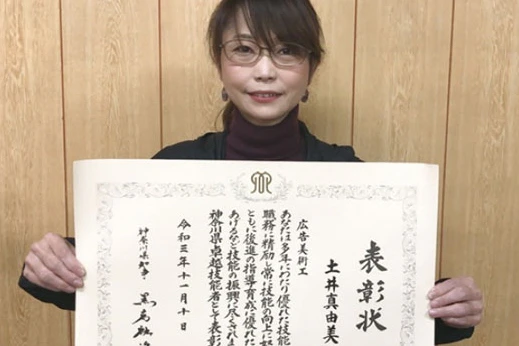 表彰状
土井真由美
広告美術工
あなたは多年にわたり優れた技能
職務に精励し常に技能の向上に努
ともに後進の指導育成に優れた
あげるなど技能の振興に尽くされま
神奈川県卓越技能者として表彰
令和三年十一月十日
神奈川県知事 黒岩祐治